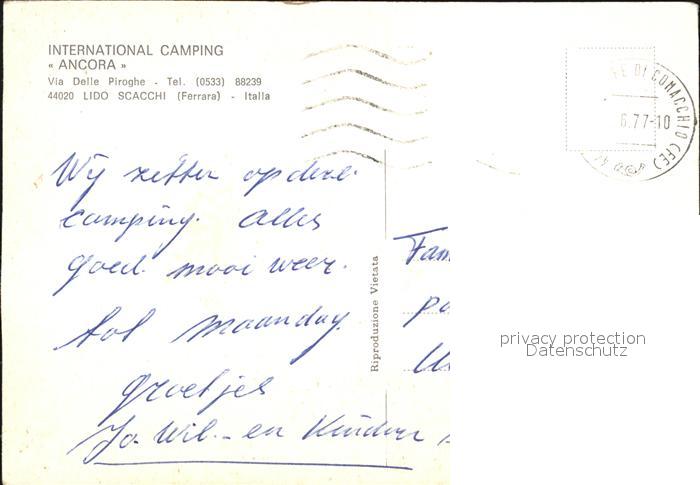 INTERNATIONAL CAMPING
« ANCORA »
Via Delle Piroghe - Tel. (0533) 88239
44020 LIDO SCACCHI (Ferrara) - Italia
DI COMACCHIO (FE)
6.77-10
Wij zitten op deze
camping. alles
goed. mooi weer.
tot maandag.
groetjes
Jo Wil - en Kinderen
Riproduzione Vietata
Fam
pa
privacy protection
Datenschutz